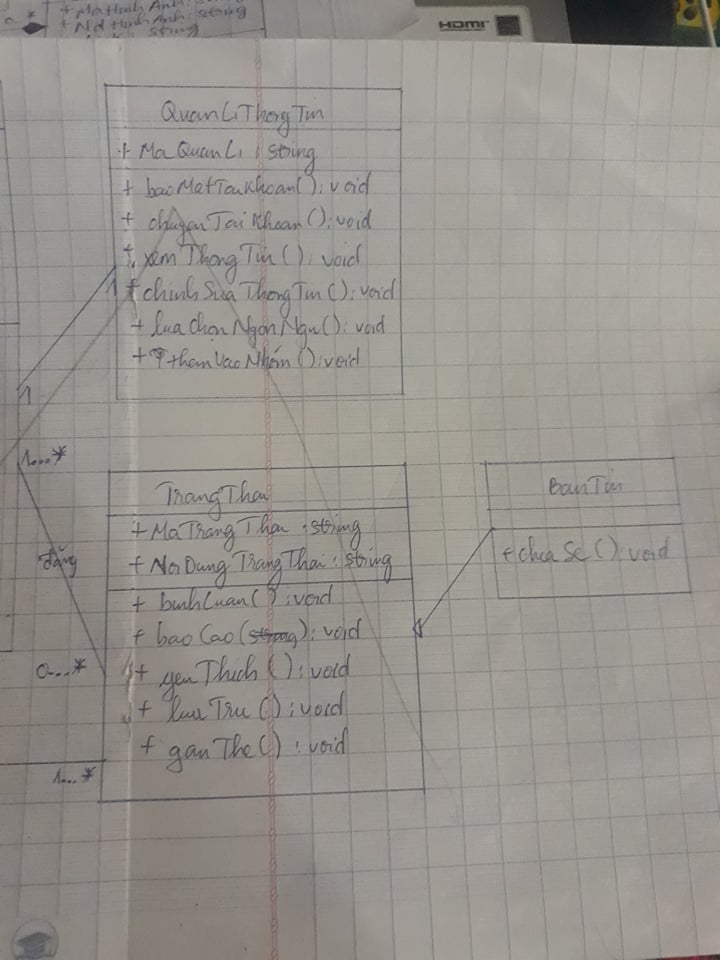 + MaHinhAnh: string
+ NdHinhAnh: string
string
HDMI
QuanLiThongTin
+ MaQuanLi: string
+ baoMatTaiKhoan(): void
+ chuyenTaiKhoan(): void
+ xemThongTin(): void
+ chinhSuaThongTin(): void
+ lua chọn NgônNgu(): void
+ thamVaoNhóm(): void
1
1
1...*
TrangThai
+ MaTrangThai: string
+ NoiDungTrangThai: string
+ binhLuan(): void
+ baoCao(string): void
+ yeuThich(): void
+ luuTru(): void
+ ganThe(): void
đăng
0...*
1...*
BanTin
+ chiaSe(): void